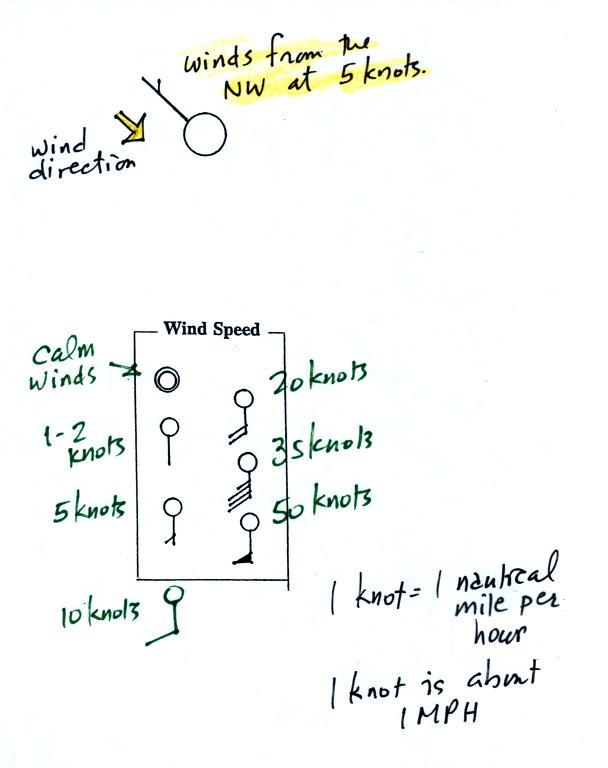 winds from the
NW at 5 knots.
wind
direction
Wind Speed
Calm
winds
1-2
knots
5 knots
10 knots
20 knots
35 knots
50 knots
1 knot = 1 nautical
mile per
hour
1 knot is about
1 MPH